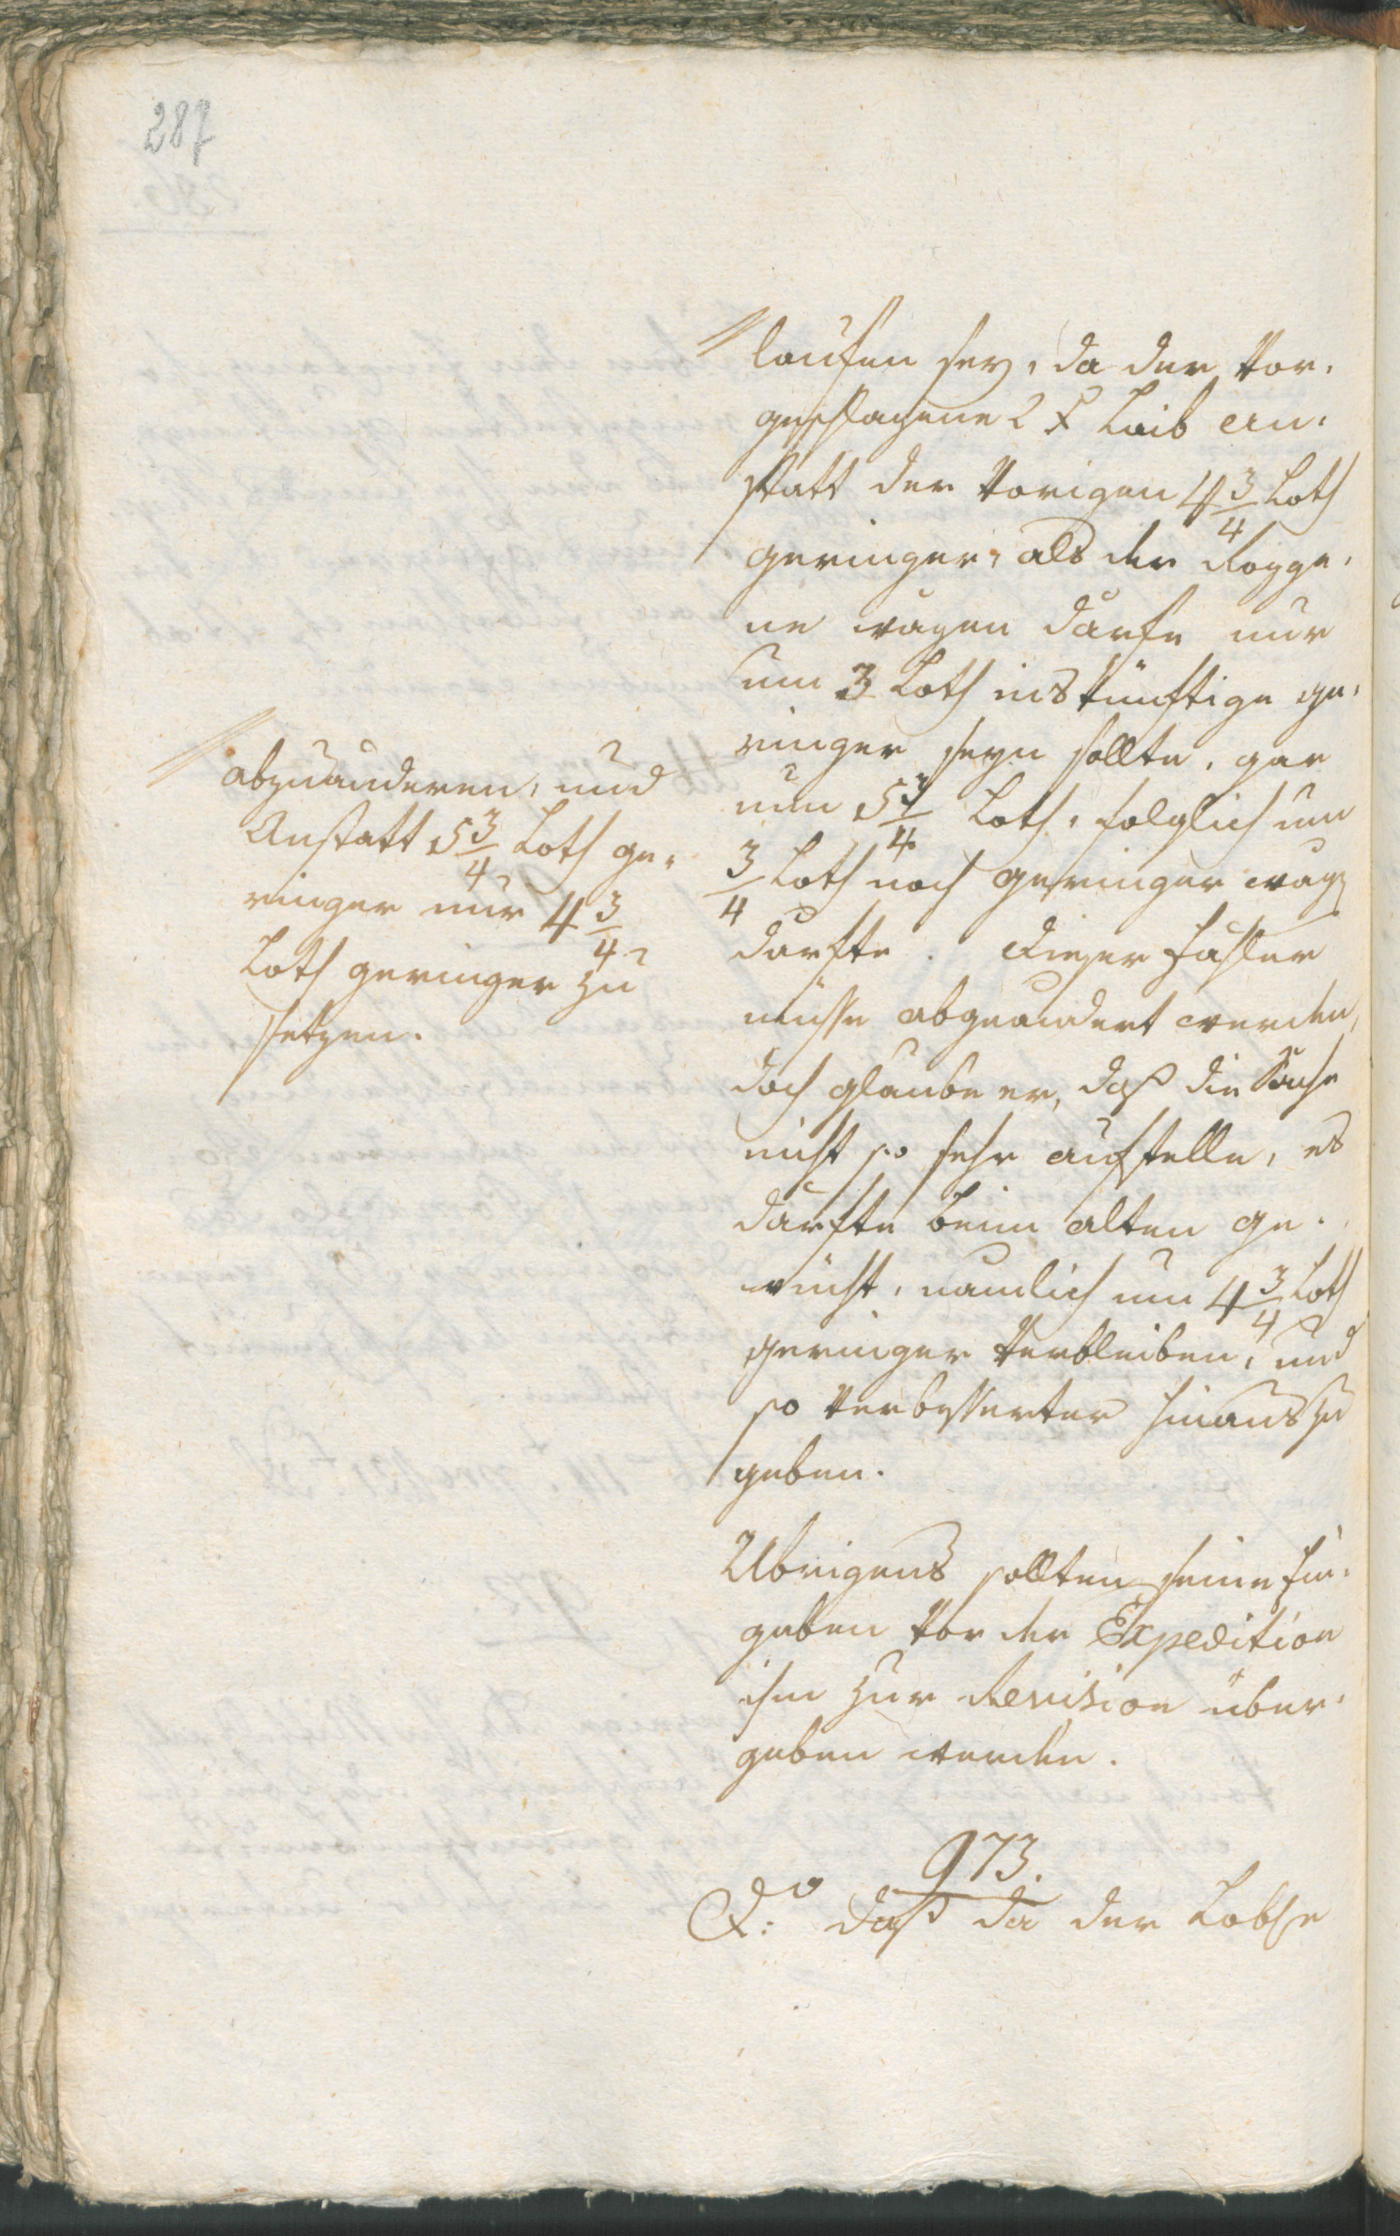 287
laufen sey, da der Vor-
geschlagene 2 x Laib an-
statt der vorigen 4 3/4 Loth
geringer, als der Rogge-
ne wägen därfe nur
um 3 Loth ins künftige ge-
ringer seyn sollte, gar
um 5 3/4 Loth, folglich um
3/4 Loth noch geringer wägen
darfte. Dieser Fähler
müsse abgeändert werden,
doch glaube er, daß die Sache
nicht so sehr aufstelle, es
därfte beim alten ge-
wicht, nämlich um 4 3/4 Loth
geringer verbleiben, und
so verbesserter hinaus zu
geben.
abzuänderen, und
Anstatt 5 3/4 Loth ge-
ringer nur 4 3/4
Loth geringer zu
setzen.
Übrigens sollten seine Ein-
gaben vor der Expedition
ihm zur Revision über-
geben werden.
973.
Do: daß da der Löbe